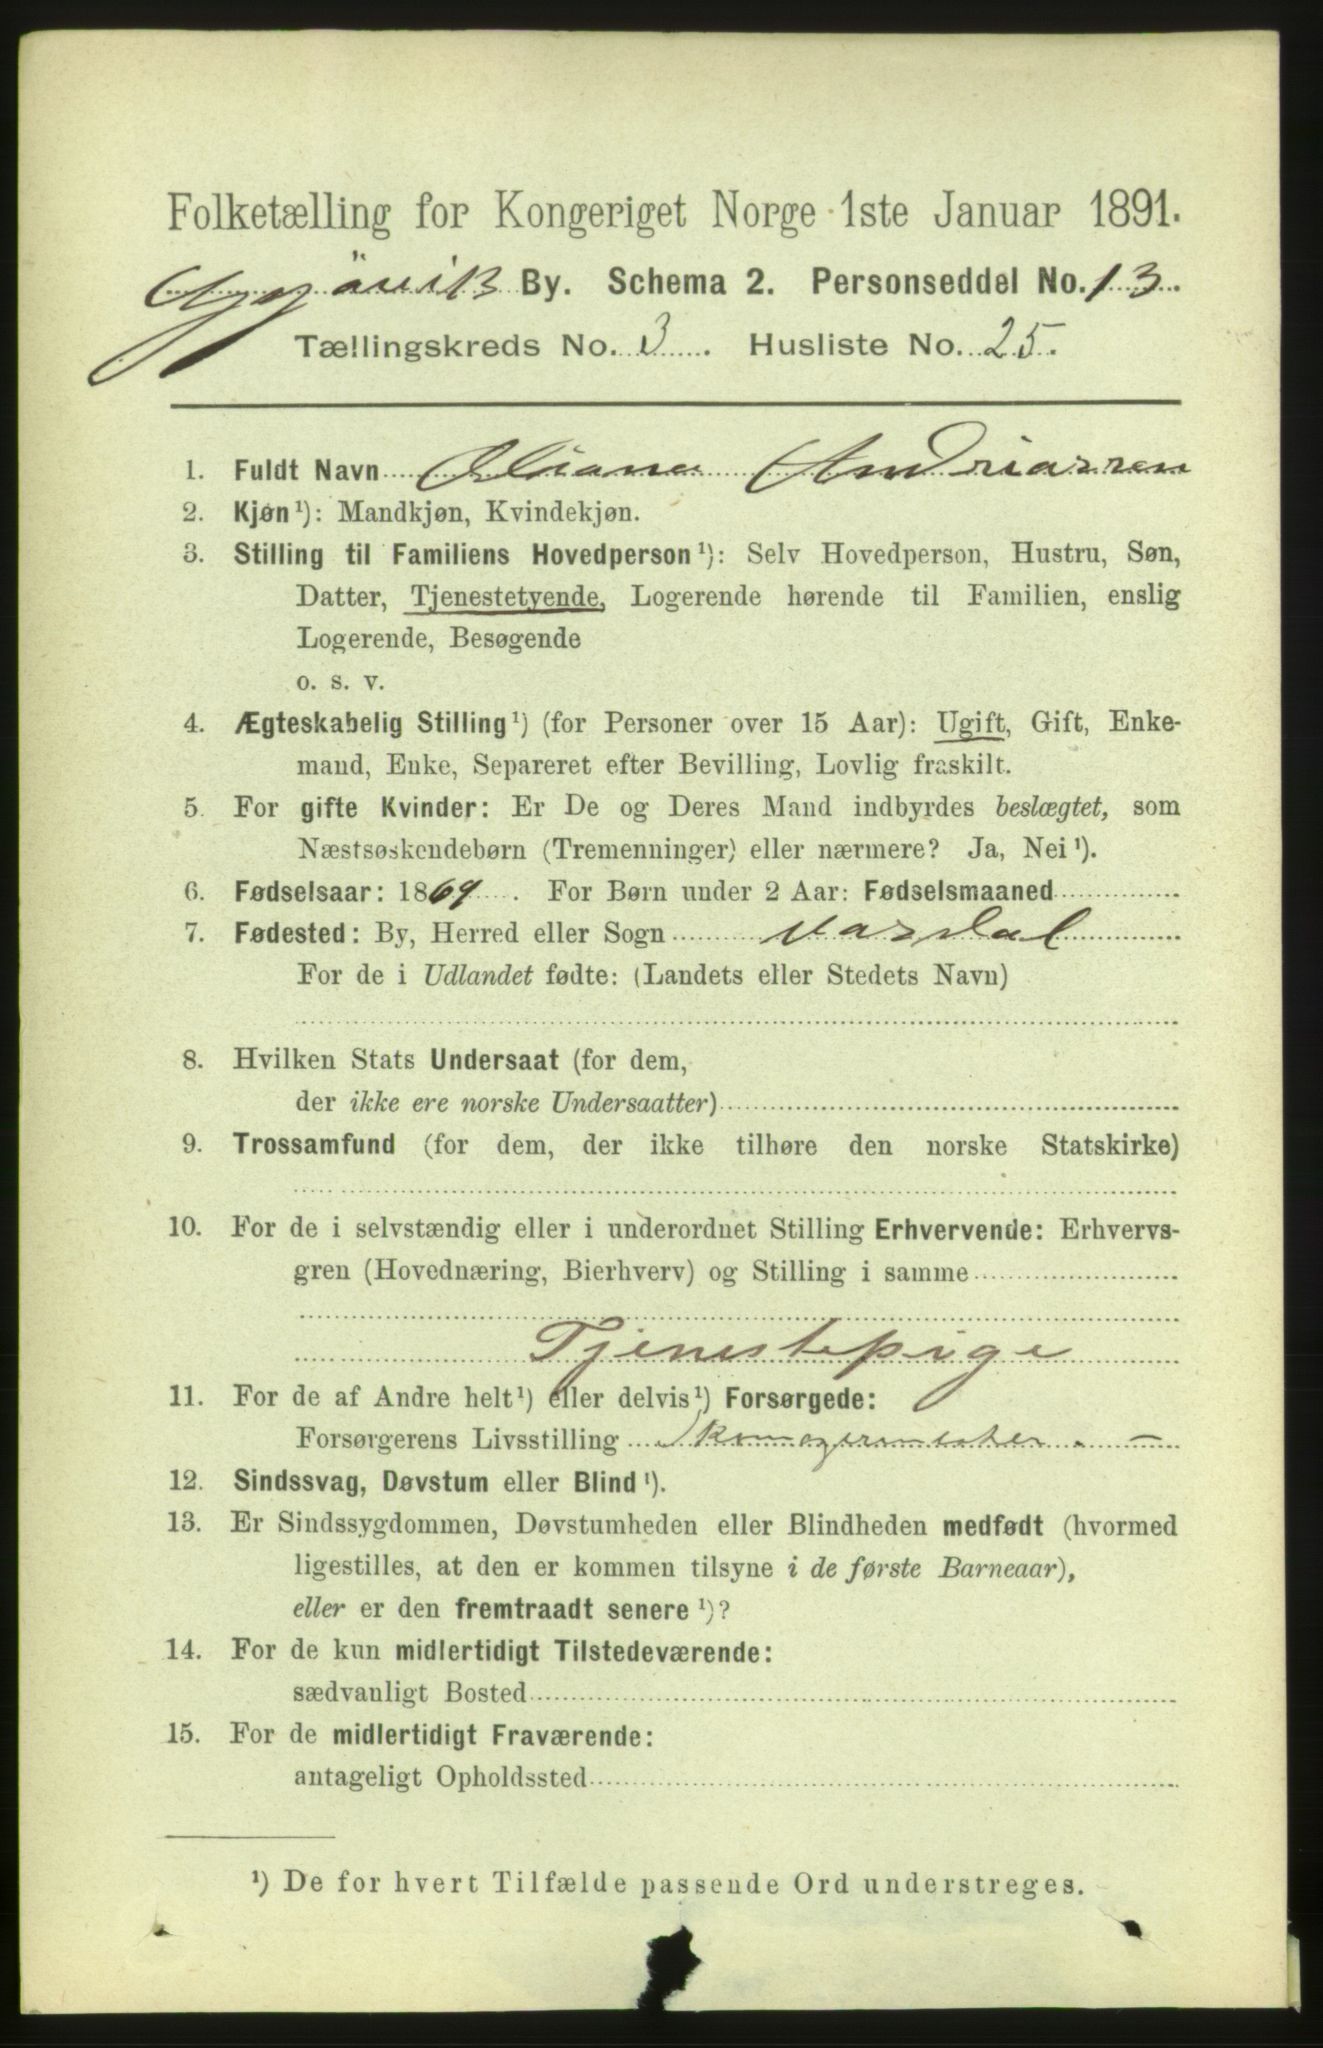 Folketælling for Kongeriget Norge 1ste Januar 1891.
Gjøvik By. Schema 2. Personseddel No. 13.
Tællingskreds No. 3. Husliste No. 25.
1. Fuldt Navn Oliana Andriassen
2. Kjøn ¹): Mandkjøn, Kvindekjøn.
3. Stilling til Familiens Hovedperson ¹): Selv Hovedperson, Hustru, Søn,
Datter, Tjenestetyende, Logerende hørende til Familien, enslig
Logerende, Besøgende
o. s. v.
4. Ægteskabelig Stilling ¹) (for Personer over 15 Aar): Ugift, Gift, Enke-
mand, Enke, Separeret efter Bevilling, Lovlig fraskilt.
5. For gifte Kvinder: Er De og Deres Mand indbyrdes beslægtet, som
Næstsøskendebørn (Tremenninger) eller nærmere? Ja, Nei ¹).
6. Fødselsaar: 1869. For Børn under 2 Aar: Fødselsmaaned
7. Fødested: By, Herred eller Sogn Vardal
For de i Udlandet fødte: (Landets eller Stedets Navn)
8. Hvilken Stats Undersaat (for dem,
der ikke ere norske Undersaatter)
9. Trossamfund (for dem, der ikke tilhøre den norske Statskirke)
10. For de i selvstændig eller i underordnet Stilling Erhvervende: Erhvervs-
gren (Hovednæring, Bierhverv) og Stilling i samme
Tjenestepige
11. For de af Andre helt ¹) eller delvis ¹) Forsørgede:
Forsørgerens Livsstilling Skomagermester. —
12. Sindssvag, Døvstum eller Blind ¹).
13. Er Sindssygdommen, Døvstumheden eller Blindheden medfødt (hvormed
ligestilles, at den er kommen tilsyne i de første Barneaar),
eller er den fremtraadt senere ¹)?
14. For de kun midlertidigt Tilstedeværende:
sædvanligt Bosted
15. For de midlertidigt Fraværende:
antageligt Opholdssted
¹) De for hvert Tilfælde passende Ord understreges.